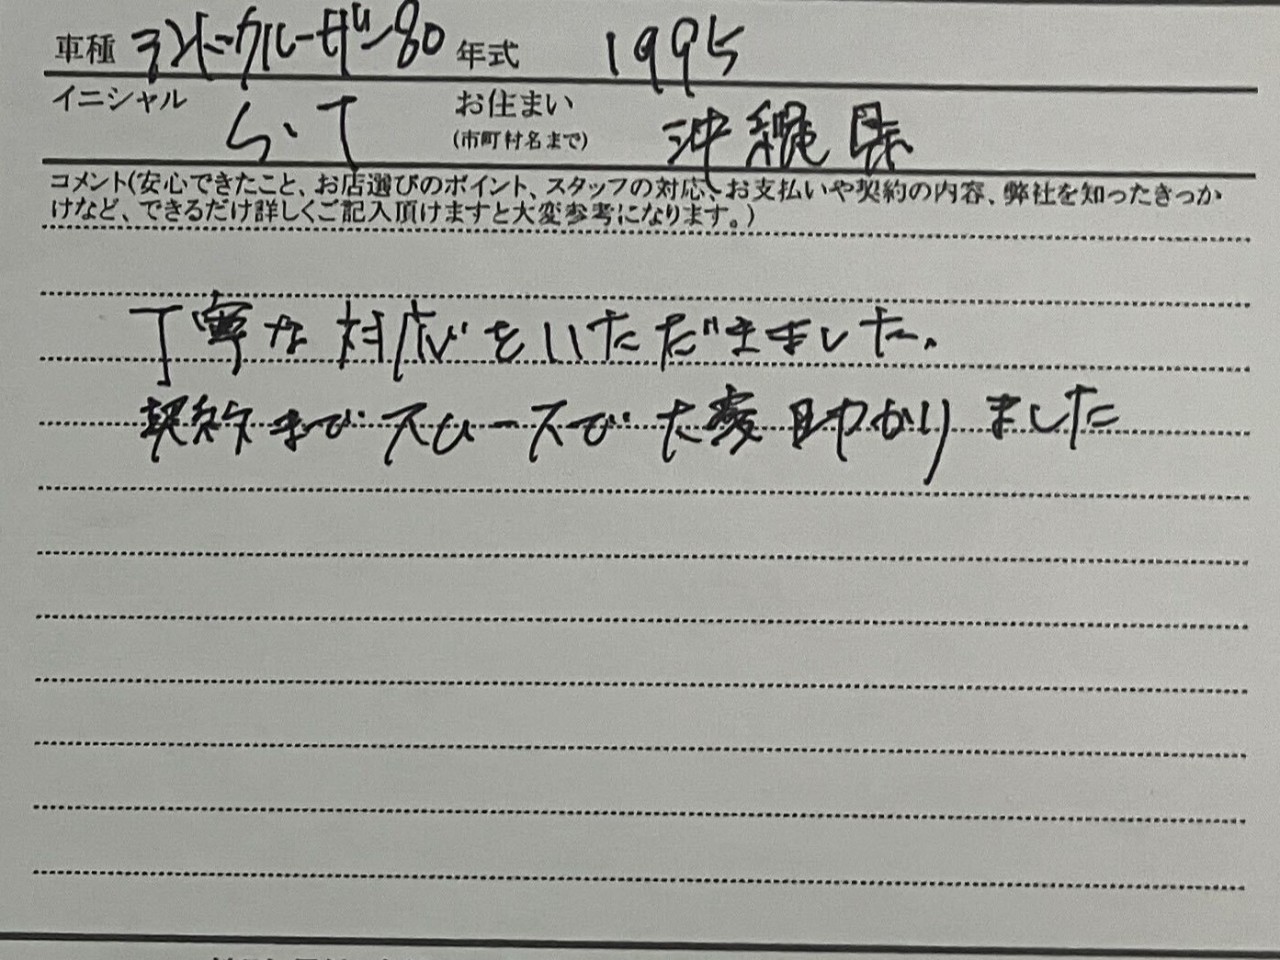 車種 ランドクルーザー80 年式 1995
イニシャル S.T お住まい(市町村名まで) 沖縄県
コメント(安心できたこと、お店選びのポイント、スタッフの対応、お支払いや契約の内容、弊社を知ったきっか
けなど、できるだけ詳しくご記入頂けますと大変参考になります。)
丁寧な対応をいただきました。
契約までスムーズで大変助かりました